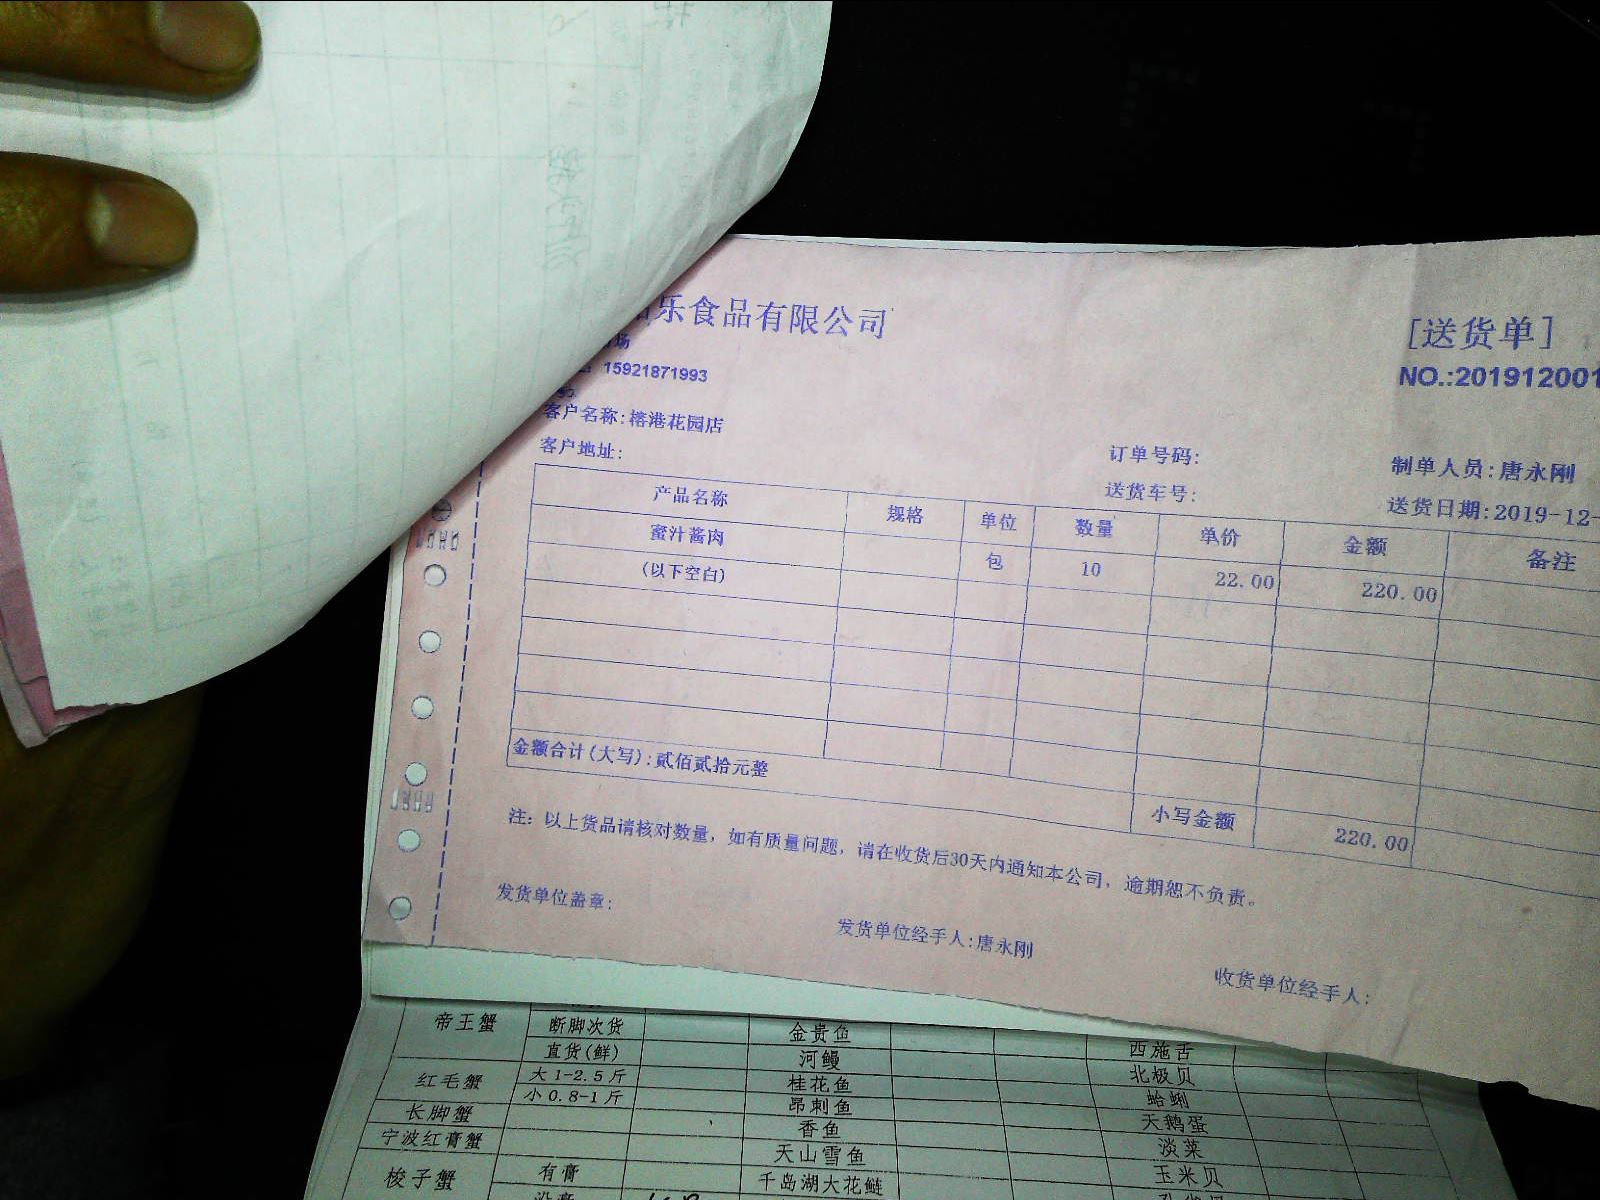 乐食品有限公司
[送货单]
场
15921871993
NO.:201912001
客户名称:榕港花园店
客户地址:
订单号码:
制单人员:唐永刚
送货车号:
送货日期:2019-12-
产品名称 规格 单位 数量 单价 金额 备注
蜜汁酱肉 包 10 22.00 220.00
(以下空白)
金额合计(大写):贰佰贰拾元整
小写金额 220.00
注: 以上货品请核对数量, 如有质量问题, 请在收货后30天内通知本公司, 逾期恕不负责。
发货单位盖章:
发货单位经手人:唐永刚
收货单位经手人:
帝王蟹 断脚次货 金贵鱼 西施舌
直货(鲜) 河鳗 北极贝
红毛蟹 大1-2.5斤 桂花鱼 蛤蜊
小0.8-1斤 昂刺鱼 天鹅蛋
长脚蟹 香鱼 淡菜
宁波红膏蟹 天山雪鱼 玉米贝
梭子蟹 有膏 千岛湖大花鲢